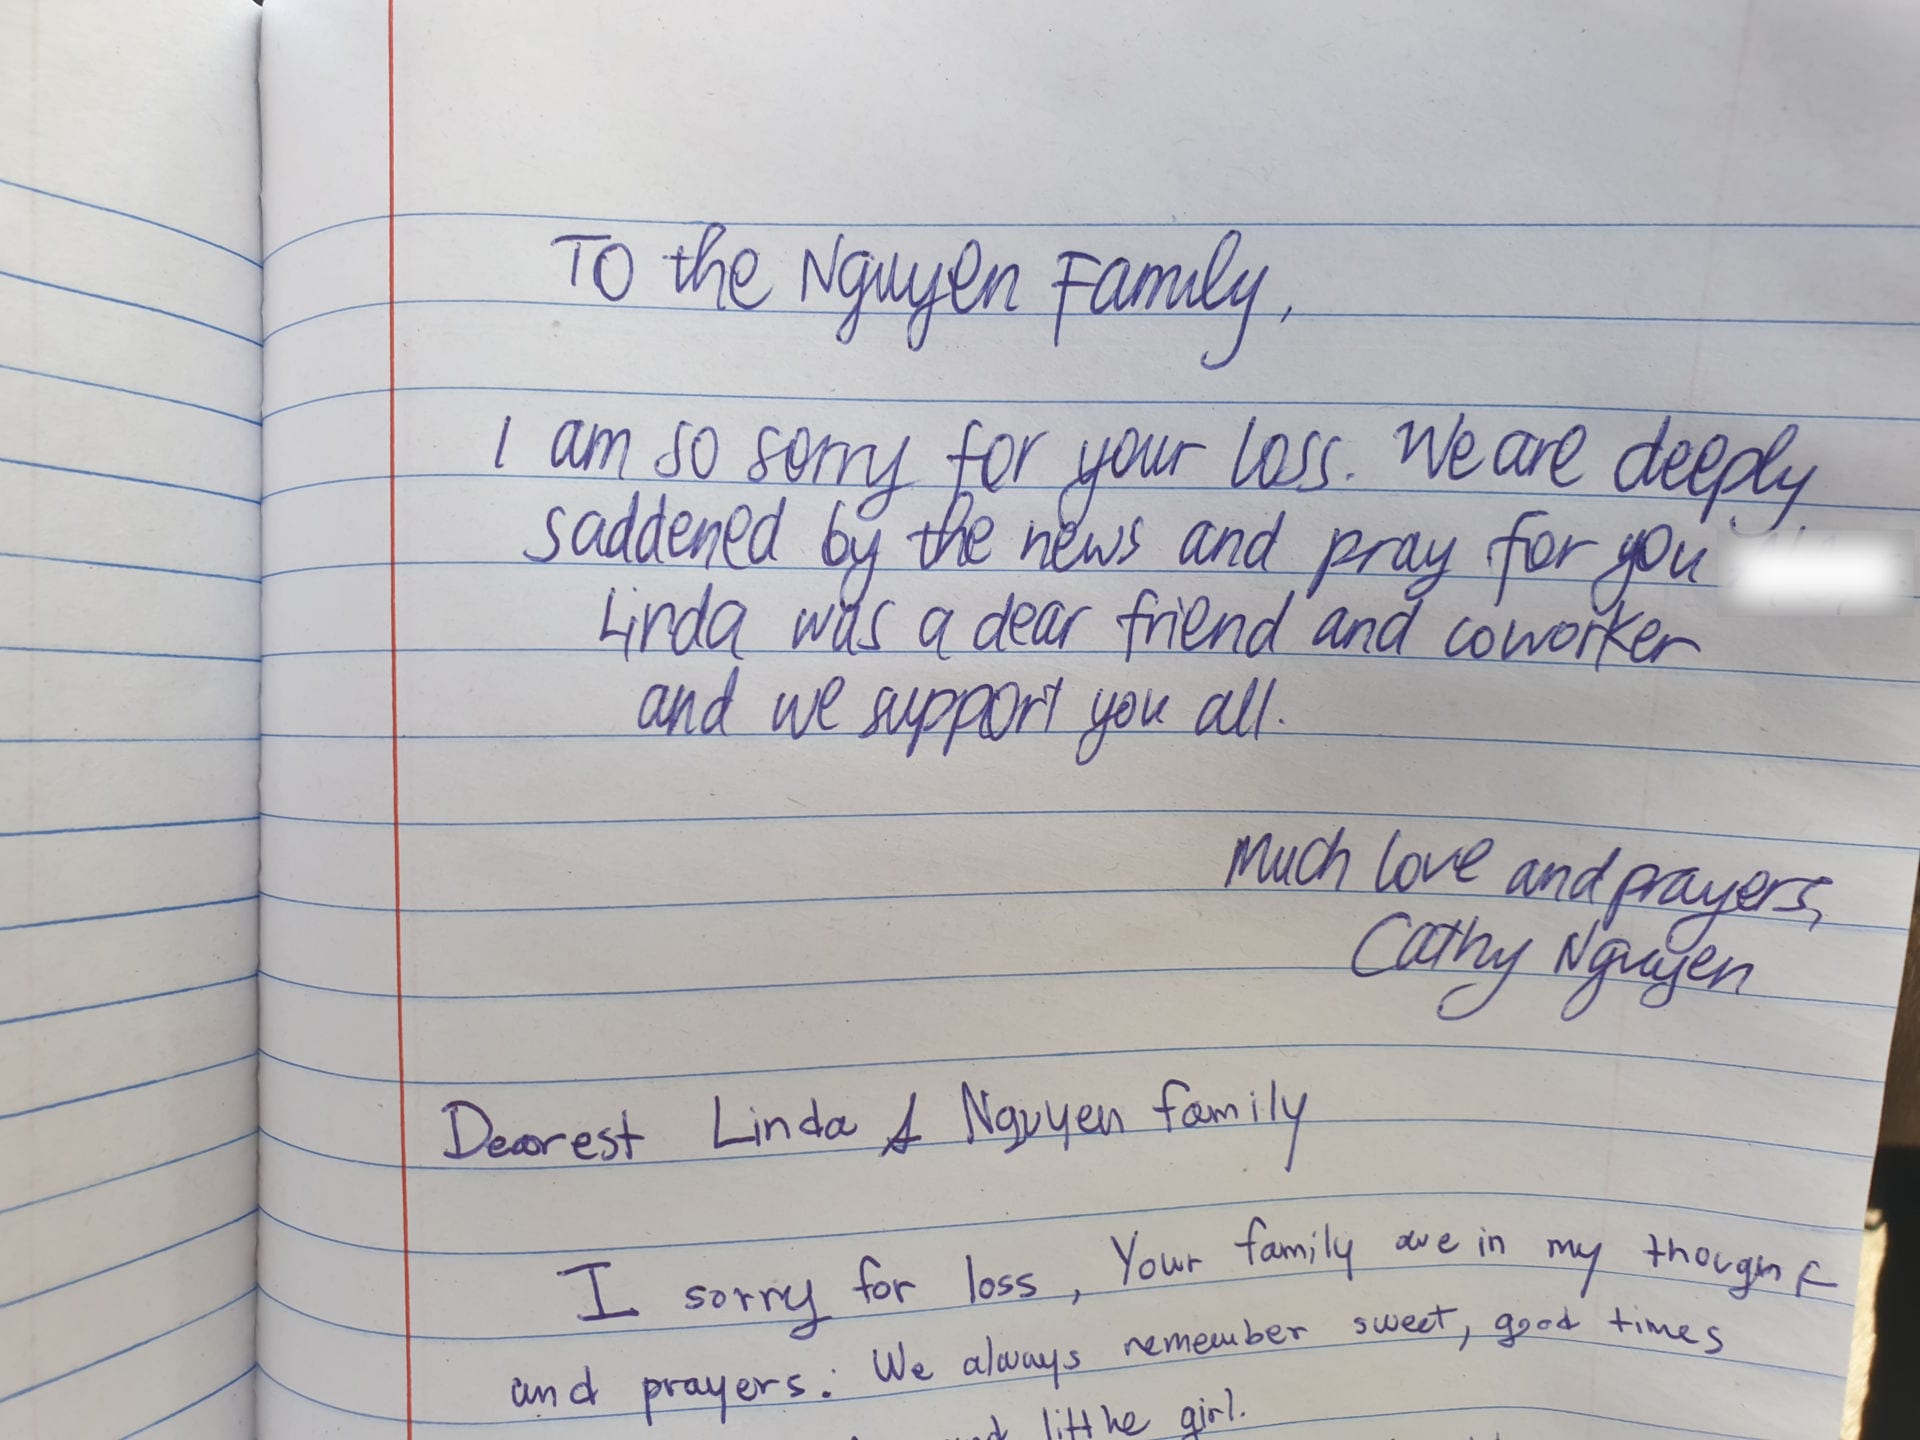 To the Nguyen Family,
I am so sorry for your loss. We are deeply
saddened by the news and pray for you
Linda was a dear friend and coworker
and we support you all.
Much love and prayers,
Cathy Nguyen
Dearest Linda & Nguyen family
I sorry for loss, Your family are in my thought
and prayers. We always remember sweet, good times
and little girl.